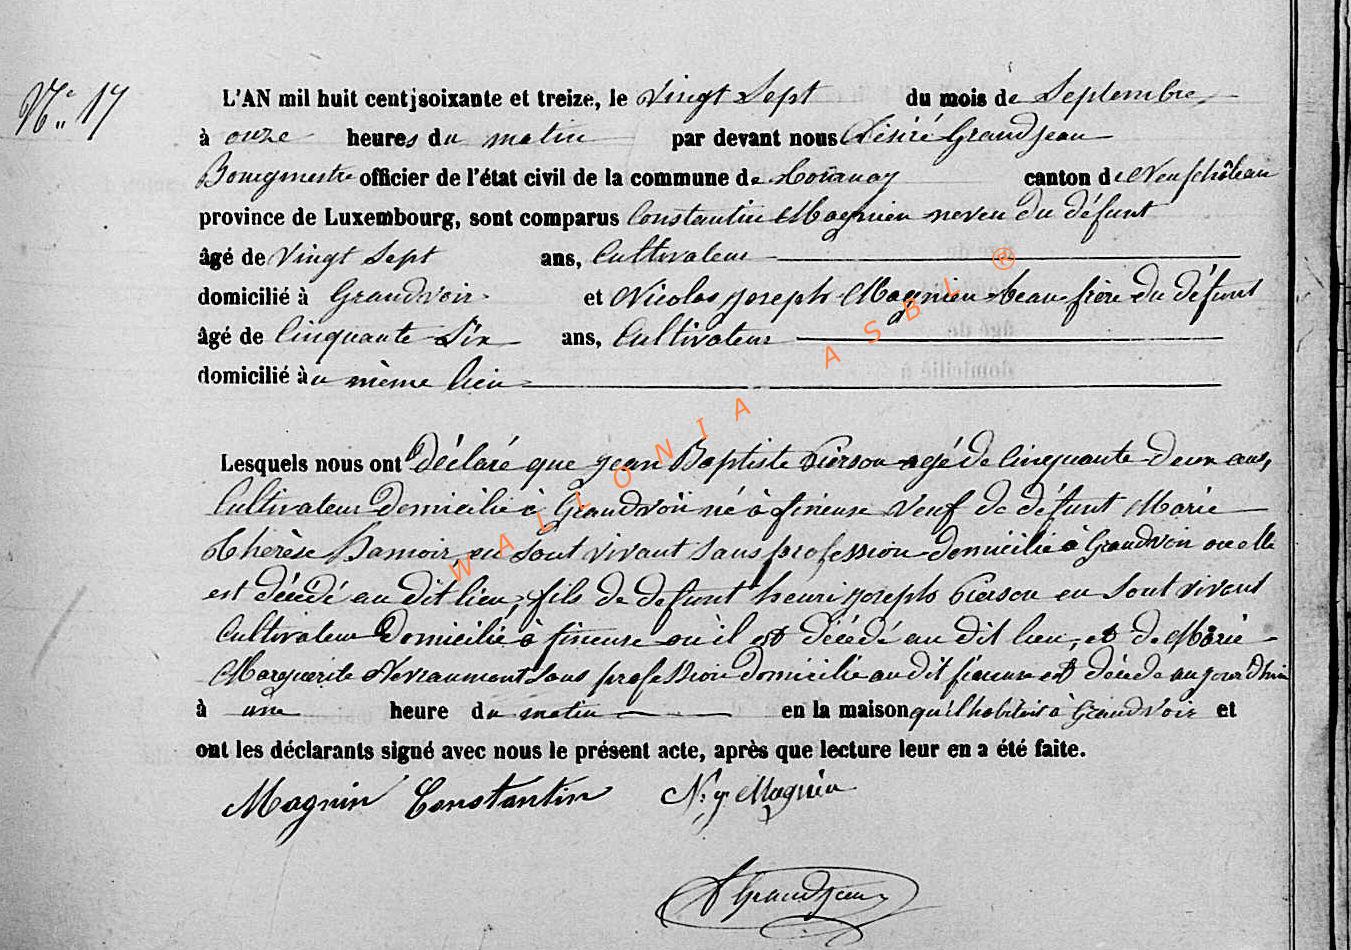 N° 17
L'AN mil huit cent soixante et treize, le Vingt Sept du mois de Septembre
à onze heures du matin par devant nous Désiré Grandjean
Bourgmestre officier de l'état civil de la commune de canton de Neufchâteau
province de Luxembourg, sont comparus Constantin Magnien neveu du défunt
âgé de Vingt Sept ans, Cultivateur
domicilié à Grandvoir et Nicolas Joseph Magnien beau frère du défunt
âgé de Cinquante Six ans, Cultivateur
domicilié à u même lieu
Lesquels nous ont déclaré que Jean Baptiste Pierson agé de Cinquante deux ans,
Cultivateur domicilié à Grandvoir né à fineuse Veuf de défunt Marie
Thérèse Hamoir, en sont vivant sans profession domicilié à Grandvoir ou elle
est décédé au dit lieu, fils de defunt henri Joseph Pierson en sont vivant
Cultivateur domicilié à fineuse ou il est décédé au dit lieu, et de Marie
Marguerite sans profession domicilié au dit fineuse est décédé aujourdhui
à une heure du matin en la maison qu'il habitait à Grandvoir et
ont les déclarants signé avec nous le présent acte, après que lecture leur en a été faite.
Magnin Constantin N. J. Magnien
D Grandjean
WALLONIA ASBL ®